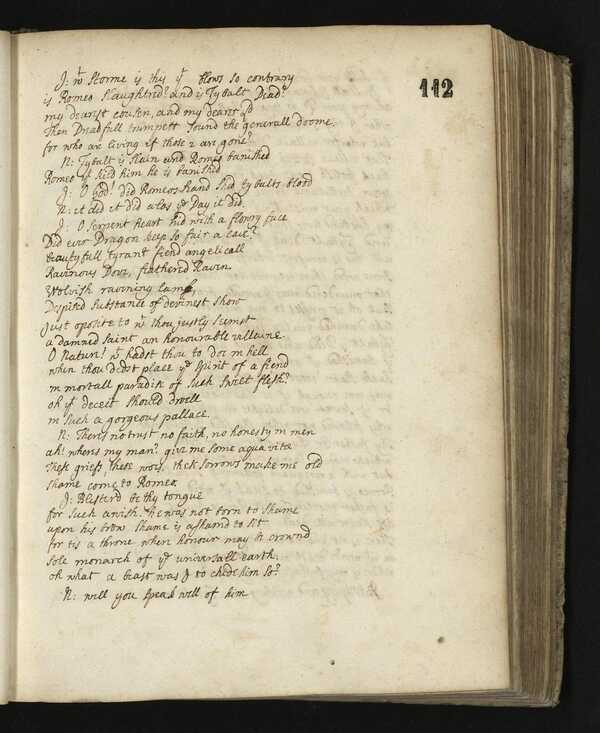 112
J: wt storme is this yt blows so contrary
is Romeo slaughtred? and is Tybalt Dead?
my dearest cousen, and my dearer Ld
Then Dreadfull trumpett sound the generall doome.
for who are living if those 2 are gone?
N: Tybalt is slain and Romeo banished
Romeo yt kild him he is banished
J: O God! Did Romeos hand shed tybalts blood
N: it did it did alas ye Day it did.
J: O serpent heart hid with a flowry face
Did ever Dragon keep so fair a cave?
beautyfull tyrant fiend angelicall
Ravinous Dove, feathered Raven
Wolvish ravening lamb,
Despised substance of devinest show
Just oposite to wt thou justly seemst
a damned saint an honourable villaine.
O Nature! wt hadst thou to doe in hell
when thou didst place ye spirit of a fiend
in mortall paradise of such sweet flesh?
oh yt deceit should dwell
in such a gorgeous pallace.
N: Theres no trust no faith, no honesty in men
ah! wheres my man? give me some aqua vita
These griefs these woes, these sorrows make me old
shame come to Romeo.
J: Blisterd be thy tongue
for such a wish. he was not born to shame
upon his brow shame is ashamd to sit
for tis a throne where honour may be crownd
sole monarch of ye universall earth.
oh what a beast was I to chide him so?
N: will you speak well of him